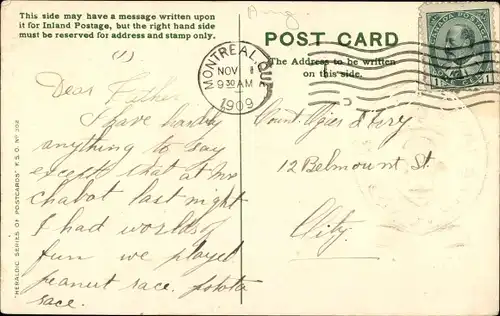 This side may have a message written upon
it for Inland Postage, but the right hand side
must be reserved for address and stamp only.
(1)
Dear Father
I have hardly
anything to say
except that at Mr
Chabot last night
I had worlds of
fun we played
peanut race. potato
race.
"HERALDIC SERIES OF POSTCARDS" F.S.O. No 302
MONTREAL QUE.
NOV 1
930 AM
1909
POST CARD
The Address to be written
on this side.
CANADA POSTAGE
1 1
Count Ogier d'Ivry
12 Belmount St
City.